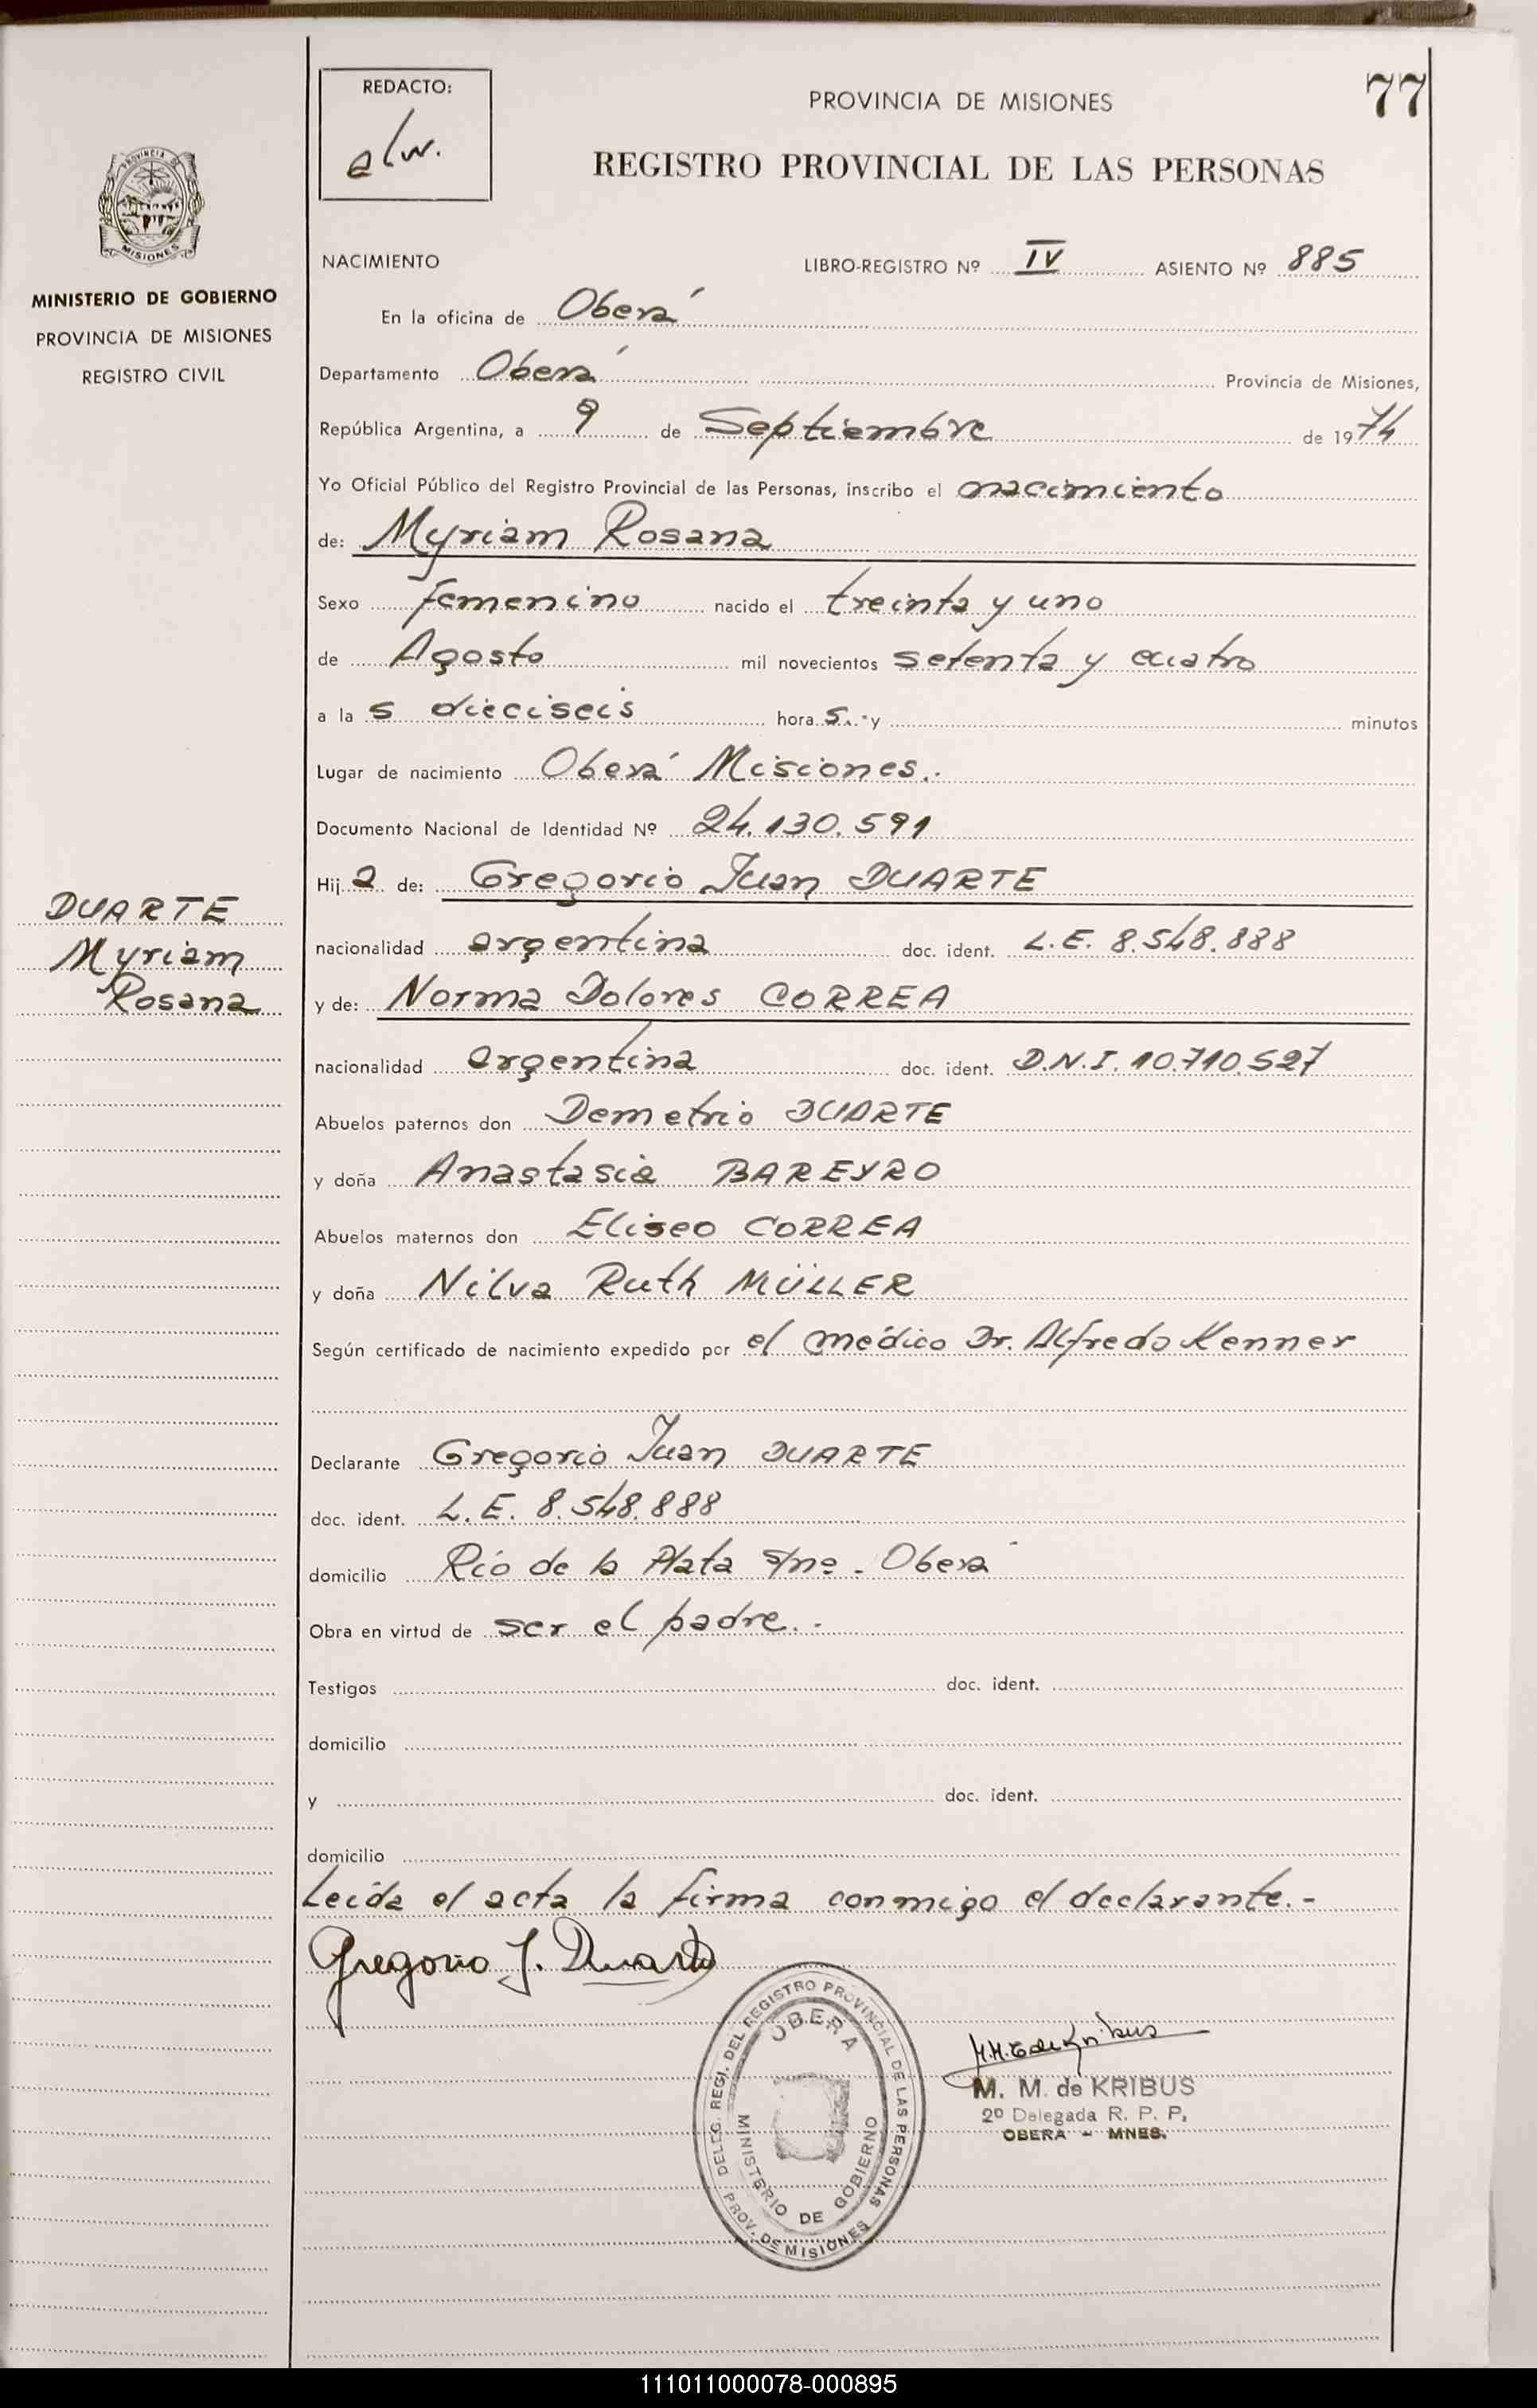 77
REDACTO:
elw.
PROVINCIA DE MISIONES
REGISTRO PROVINCIAL DE LAS PERSONAS
MISIONES
MINISTERIO DE GOBIERNO
PROVINCIA DE MISIONES
REGISTRO CIVIL
NACIMIENTO LIBRO-REGISTRO Nº IV ASIENTO Nº 885
En la oficina de Oberá
Departamento Oberá Provincia de Misiones,
República Argentina, a 9 de Septiembre de 1974
Yo Oficial Público del Registro Provincial de las Personas, inscribo el nacimiento
de: Myriam Rosana
Sexo femenino nacido el treinta y uno
de Agosto mil novecientos setenta y cuatro
a la s dieciseis hora s. y minutos
Lugar de nacimiento Oberá Misiones.
Documento Nacional de Identidad Nº 24.130.591
Hij a de: Gregorio Juan DUARTE
DUARTE
Myriam
Rosana
nacionalidad argentina doc. ident. L.E. 8.548.888
y de: Norma Dolores CORREA
nacionalidad argentina doc. ident. D.N.I. 10.710.527
Abuelos paternos don Demetrio DUARTE
y doña Anastasia BAREYRO
Abuelos maternos don Eliseo CORREA
y doña Nilva Ruth MÜLLER
Según certificado de nacimiento expedido por el médico Dr. Alfredo Kenner
Declarante Gregorio Juan DUARTE
doc. ident. L.E. 8.548.888
domicilio Río de la Plata s/nº. Oberá
Obra en virtud de ser el padre.-
Testigos doc. ident.
domicilio
y doc. ident.
domicilio
Leída el acta la firma conmigo el declarante.-
Gregorio J. Duarte
DELEG. REGI. DEL REGISTRO PROVINCIAL DE LAS PERSONAS
OBERA
MINISTERIO DE GOBIERNO
PROV. DE MISIONES
M. M. de KRIBUS
2º Delegada R. P. P.
OBERA - MNES.
111011000078-000895